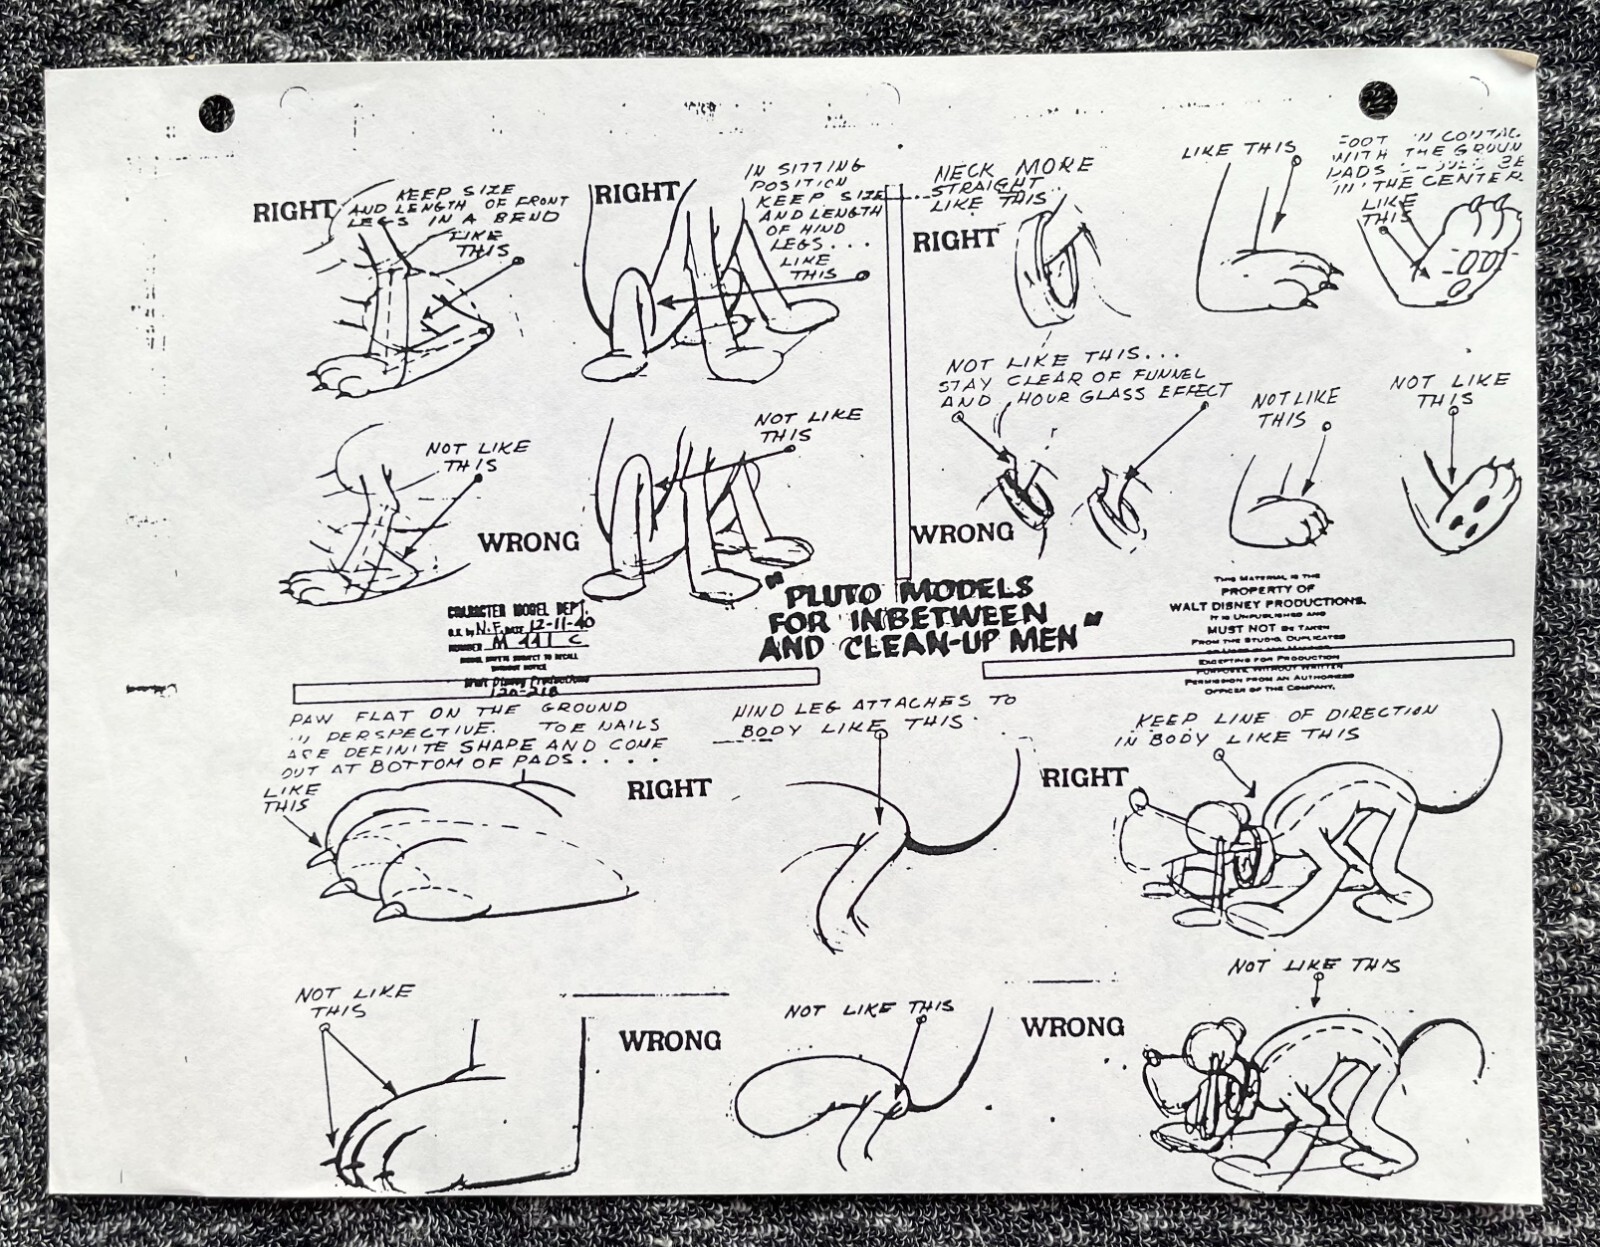 RIGHT
KEEP SIZE
AND LENGTH OF FRONT
LEGS IN A BEND
LIKE
THIS
RIGHT
IN SITTING
POSITION
KEEP SIZE
AND LENGTH
OF HIND
LEGS...
LIKE
THIS
NOT LIKE
THIS
WRONG
NOT LIKE
THIS
NECK MORE
STRAIGHT
LIKE THIS
RIGHT
LIKE THIS
FOOT IN CONTAC
WITH THE GROUN
PADS BE
IN THE CENTER
LIKE
THIS
NOT LIKE THIS...
STAY CLEAR OF FUNNEL
AND HOUR GLASS EFFECT
WRONG
NOT LIKE
THIS
NOT LIKE
THIS
CHARACTER MODEL DEPT.
O.K. by N.F. DATE 12-11-40
NUMBER M 111 C
MODEL SUBJECT TO RECALL
WITHOUT NOTICE
Walt Disney Productions
"PLUTO MODELS
FOR INBETWEEN
AND CLEAN-UP MEN"
THIS MATERIAL IS THE
PROPERTY OF
WALT DISNEY PRODUCTIONS.
IT IS UNPUBLISHED AND
MUST NOT BE TAKEN
FROM THE STUDIO, DUPLICATED
EXCEPTING FOR PRODUCTION
PURPOSES, WITHOUT WRITTEN
PERMISSION FROM AN AUTHORIZED
OFFICER OF THE COMPANY.
PAW FLAT ON THE GROUND
IN PERSPECTIVE. TOE NAILS
ARE DEFINITE SHAPE AND COME
OUT AT BOTTOM OF PADS....
LIKE
THIS
RIGHT
NOT LIKE
THIS
WRONG
HIND LEG ATTACHES TO
BODY LIKE THIS.
RIGHT
NOT LIKE THIS
WRONG
KEEP LINE OF DIRECTION
IN BODY LIKE THIS
NOT LIKE THIS